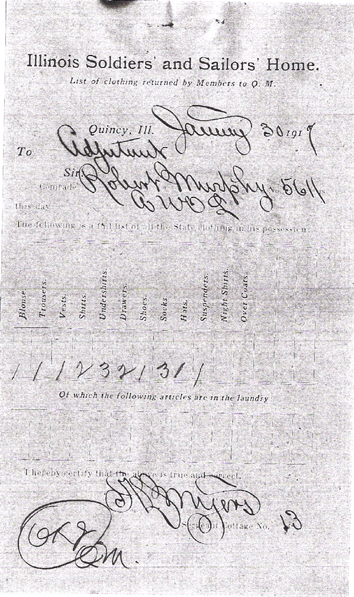 Illinois Soldiers' and Sailors' Home.
List of clothing returned by Members to Q. M.
Quincy, Ill. January 30 1917
To Adjutant
Sir
Comrade Robert Murphy. 5611
this day A W O L
The following is a full list of all the State clothing in his possession
Blouse Trousers. Vests. Shirts. Undershirts. Drawers. Shoes. Socks Hats. Suspenders. Night Shirts. Over Coats.
1 1 1 2 3 2 1 3 1 1
Of which the following articles are in the laundry
I hereby certify that the above is true and correct.
Myers
Sergeant Cottage No. 13